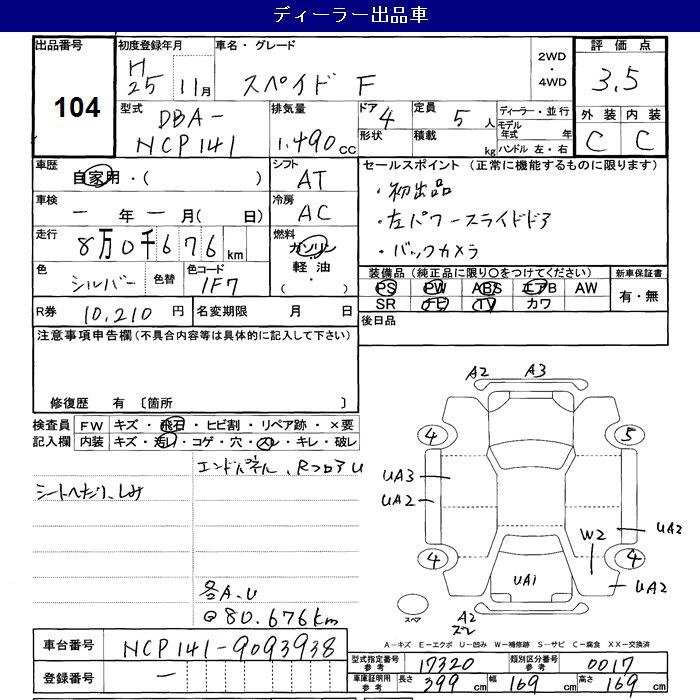 ディーラー出品車
出品番号 104
初度登録年月 H25 11月
車名・グレード スペイド F
2WD・4WD
評価点 3.5
外装 C 内装 C
型式 DBA-NCP141
排気量 1.490cc
ドア 4 形状
定員 5人 積載 kg
ディーラー・並行
モデル年式 年
ハンドル 左・右
車歴 自家用・( )
シフト AT
車検 ー年ー月( 日)
冷房 AC
走行 8万0千676km
燃料 ガソリン・軽油・( )
色 シルバー 色替 色コード 1F7
セールスポイント (正常に機能するものに限ります)
・初出品
・左パワースライドドア
・バックカメラ
装備品(純正品に限り○をつけてください) 新車保証書
PS PW ABS エアB AW 有・無
SR ナビ TV カワ
R券 10,210円 名変期限 月 日
後日品
注意事項申告欄(不具合内容等は具体的に記入して下さい)
修復歴 有 〔箇所 〕
検査員 FW キズ・飛石・ヒビ割・リペア跡・×要
記入欄 内装 キズ・汚レ・コゲ・穴・スレ・キレ・破レ
エンドパネル、RフロアU
シートへたり、しみ
各A.U
@80.676km
A2 A3
4 5
UA3
UA2
UA2
W2
4 4
UA1
UA2
スペア
A2
ズレ
A-キズ E-エクボ U-凹み W-補修跡 S-サビ C-腐食 XX-交換済
車台番号 NCP141-9093938
登録番号 ー
型式指定番号 参考 17320 類別区分番号 参考 0017
車庫証明用 参考 長さ 399cm 幅 169cm 高さ 169cm